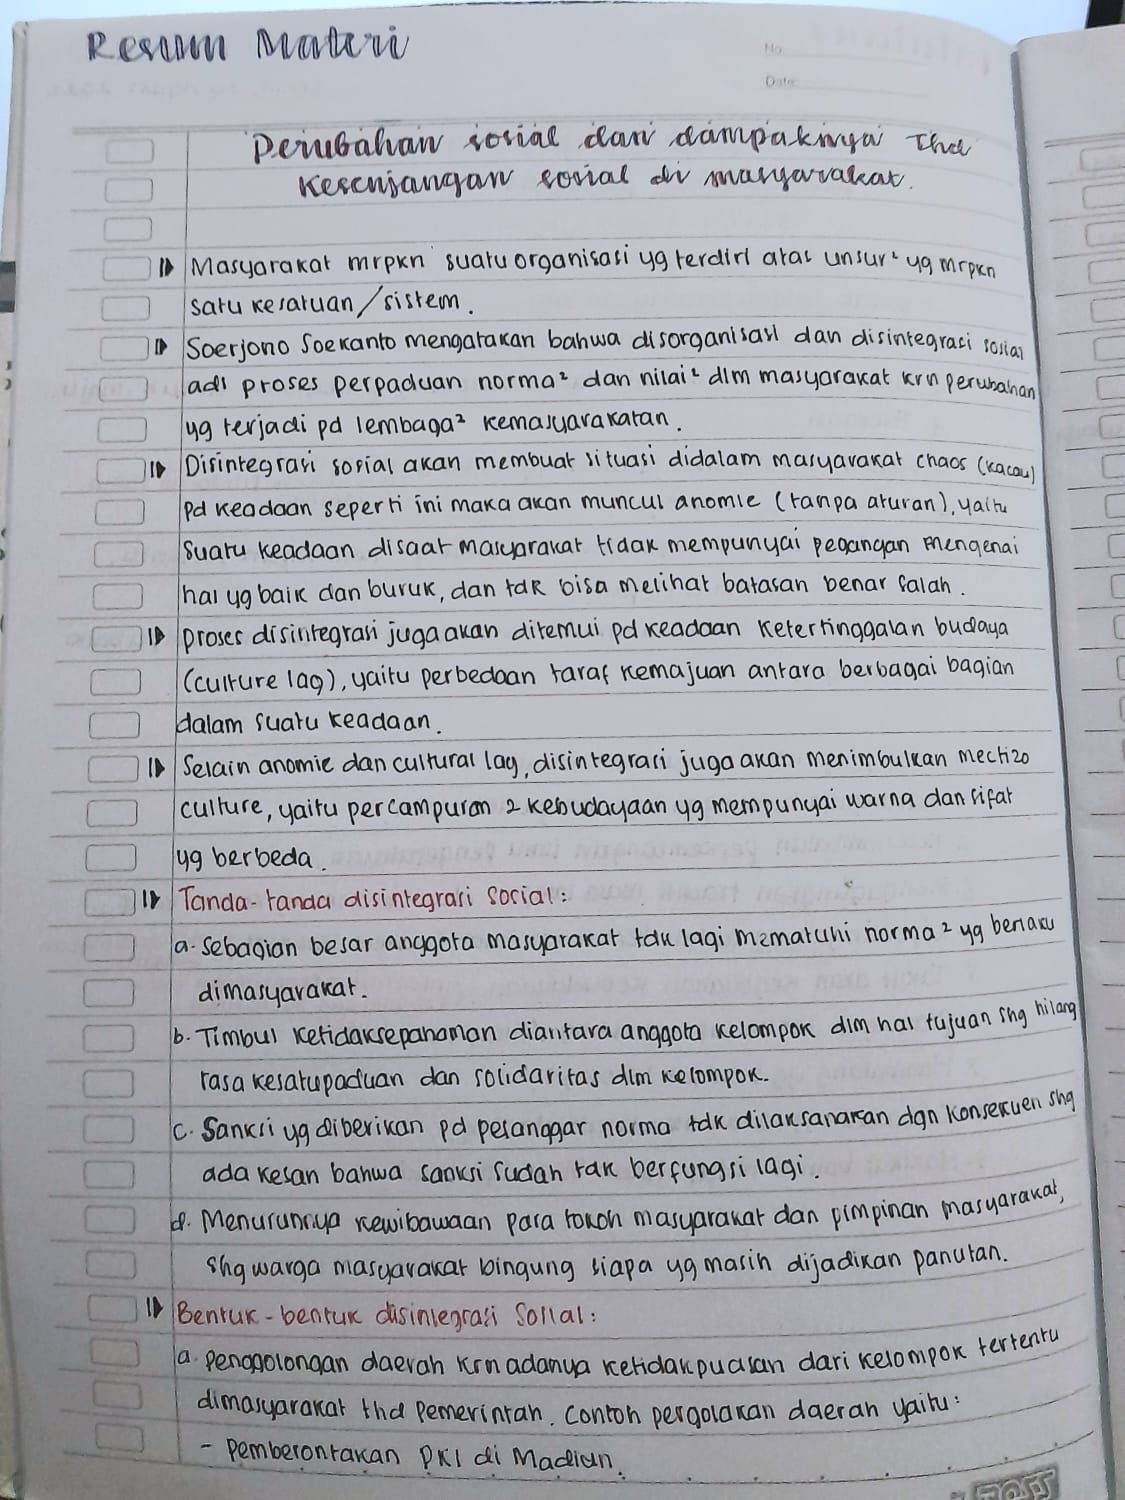 Resum Materi
No.
Date:
Perubahan sosial dan dampaknya thd
Kesenjangan sosial di masyarakat.
Masyarakat mrpkn suatu organisasi yg terdiri atas unsur² yg mrpkn
satu kesatuan/sistem.
Soerjono Soekanto mengatakan bahwa disorganisasi dan disintegrasi sosial
adl proses perpaduan norma² dan nilai² dlm masyarakat krn perubahan
yg terjadi pd lembaga² kemasyarakatan.
Disintegrasi sosial akan membuat situasi didalam masyarakat chaos (kacau)
Pd keadaan seperti ini maka akan muncul anomie (tanpa aturan), yaitu
suatu keadaan disaat masyarakat tidak mempunyai pegangan mengenai
hal yg baik dan buruk, dan tdk bisa melihat batasan benar salah.
proses disintegrasi juga akan ditemui pd keadaan ketertinggalan budaya
(culture lag), yaitu perbedaan taraf kemajuan antara berbagai bagian
dalam suatu keadaan.
Selain anomie dan cultural lag, disintegrasi juga akan menimbulkan mectizo
culture, yaitu percampuran 2 kebudayaan yg mempunyai warna dan sifat
yg berbeda.
Tanda-tanda disintegrasi social:
a. Sebagian besar anggota masyarakat tdk lagi mematuhi norma² yg berlaku
dimasyarakat.
b. Timbul ketidaksepahaman diantara anggota kelompok dlm hal tujuan shg hilang
rasa kesatupaduan dan solidaritas dlm kelompok.
c. Sanksi yg diberikan pd pelanggar norma tdk dilaksanakan dgn konsekuen shg
ada kesan bahwa sanksi sudah tak berfungsi lagi.
d. Menurunnya kewibawaan para tokoh masyarakat dan pimpinan masyarakat,
shg warga masyarakat bingung siapa yg masih dijadikan panutan.
Bentuk-bentuk disintegrasi Sosial:
a. penggolongan daerah krn adanya ketidakpuasan dari kelompok tertentu
dimasyarakat thd Pemerintah. Contoh pergolakan daerah yaitu:
- Pemberontakan PKI di Madiun.